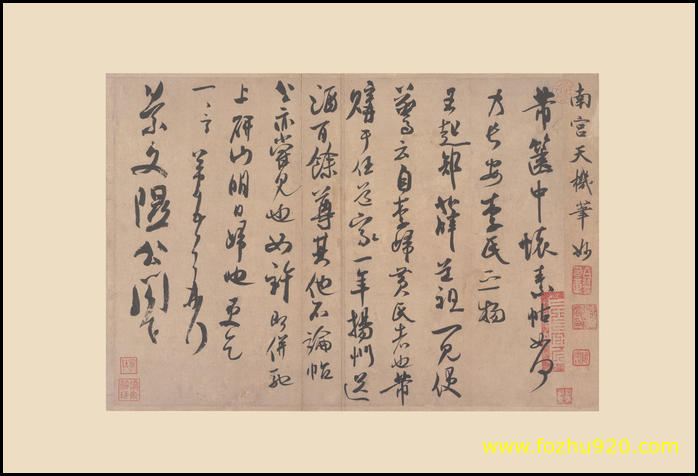 南宮天機筆妙
芾篋中懷素帖如何
乃長安李氏之物
王起部薛道祖一見便
驚云自李歸黃氏者也芾
購于任道家一年揚州送
酒百餘尊其他不論帖
公亦嘗見也如許即併馳
上研山明日歸也更乞
一言芾頓首再拜
景文隰公閣下
www.fozhu920.com